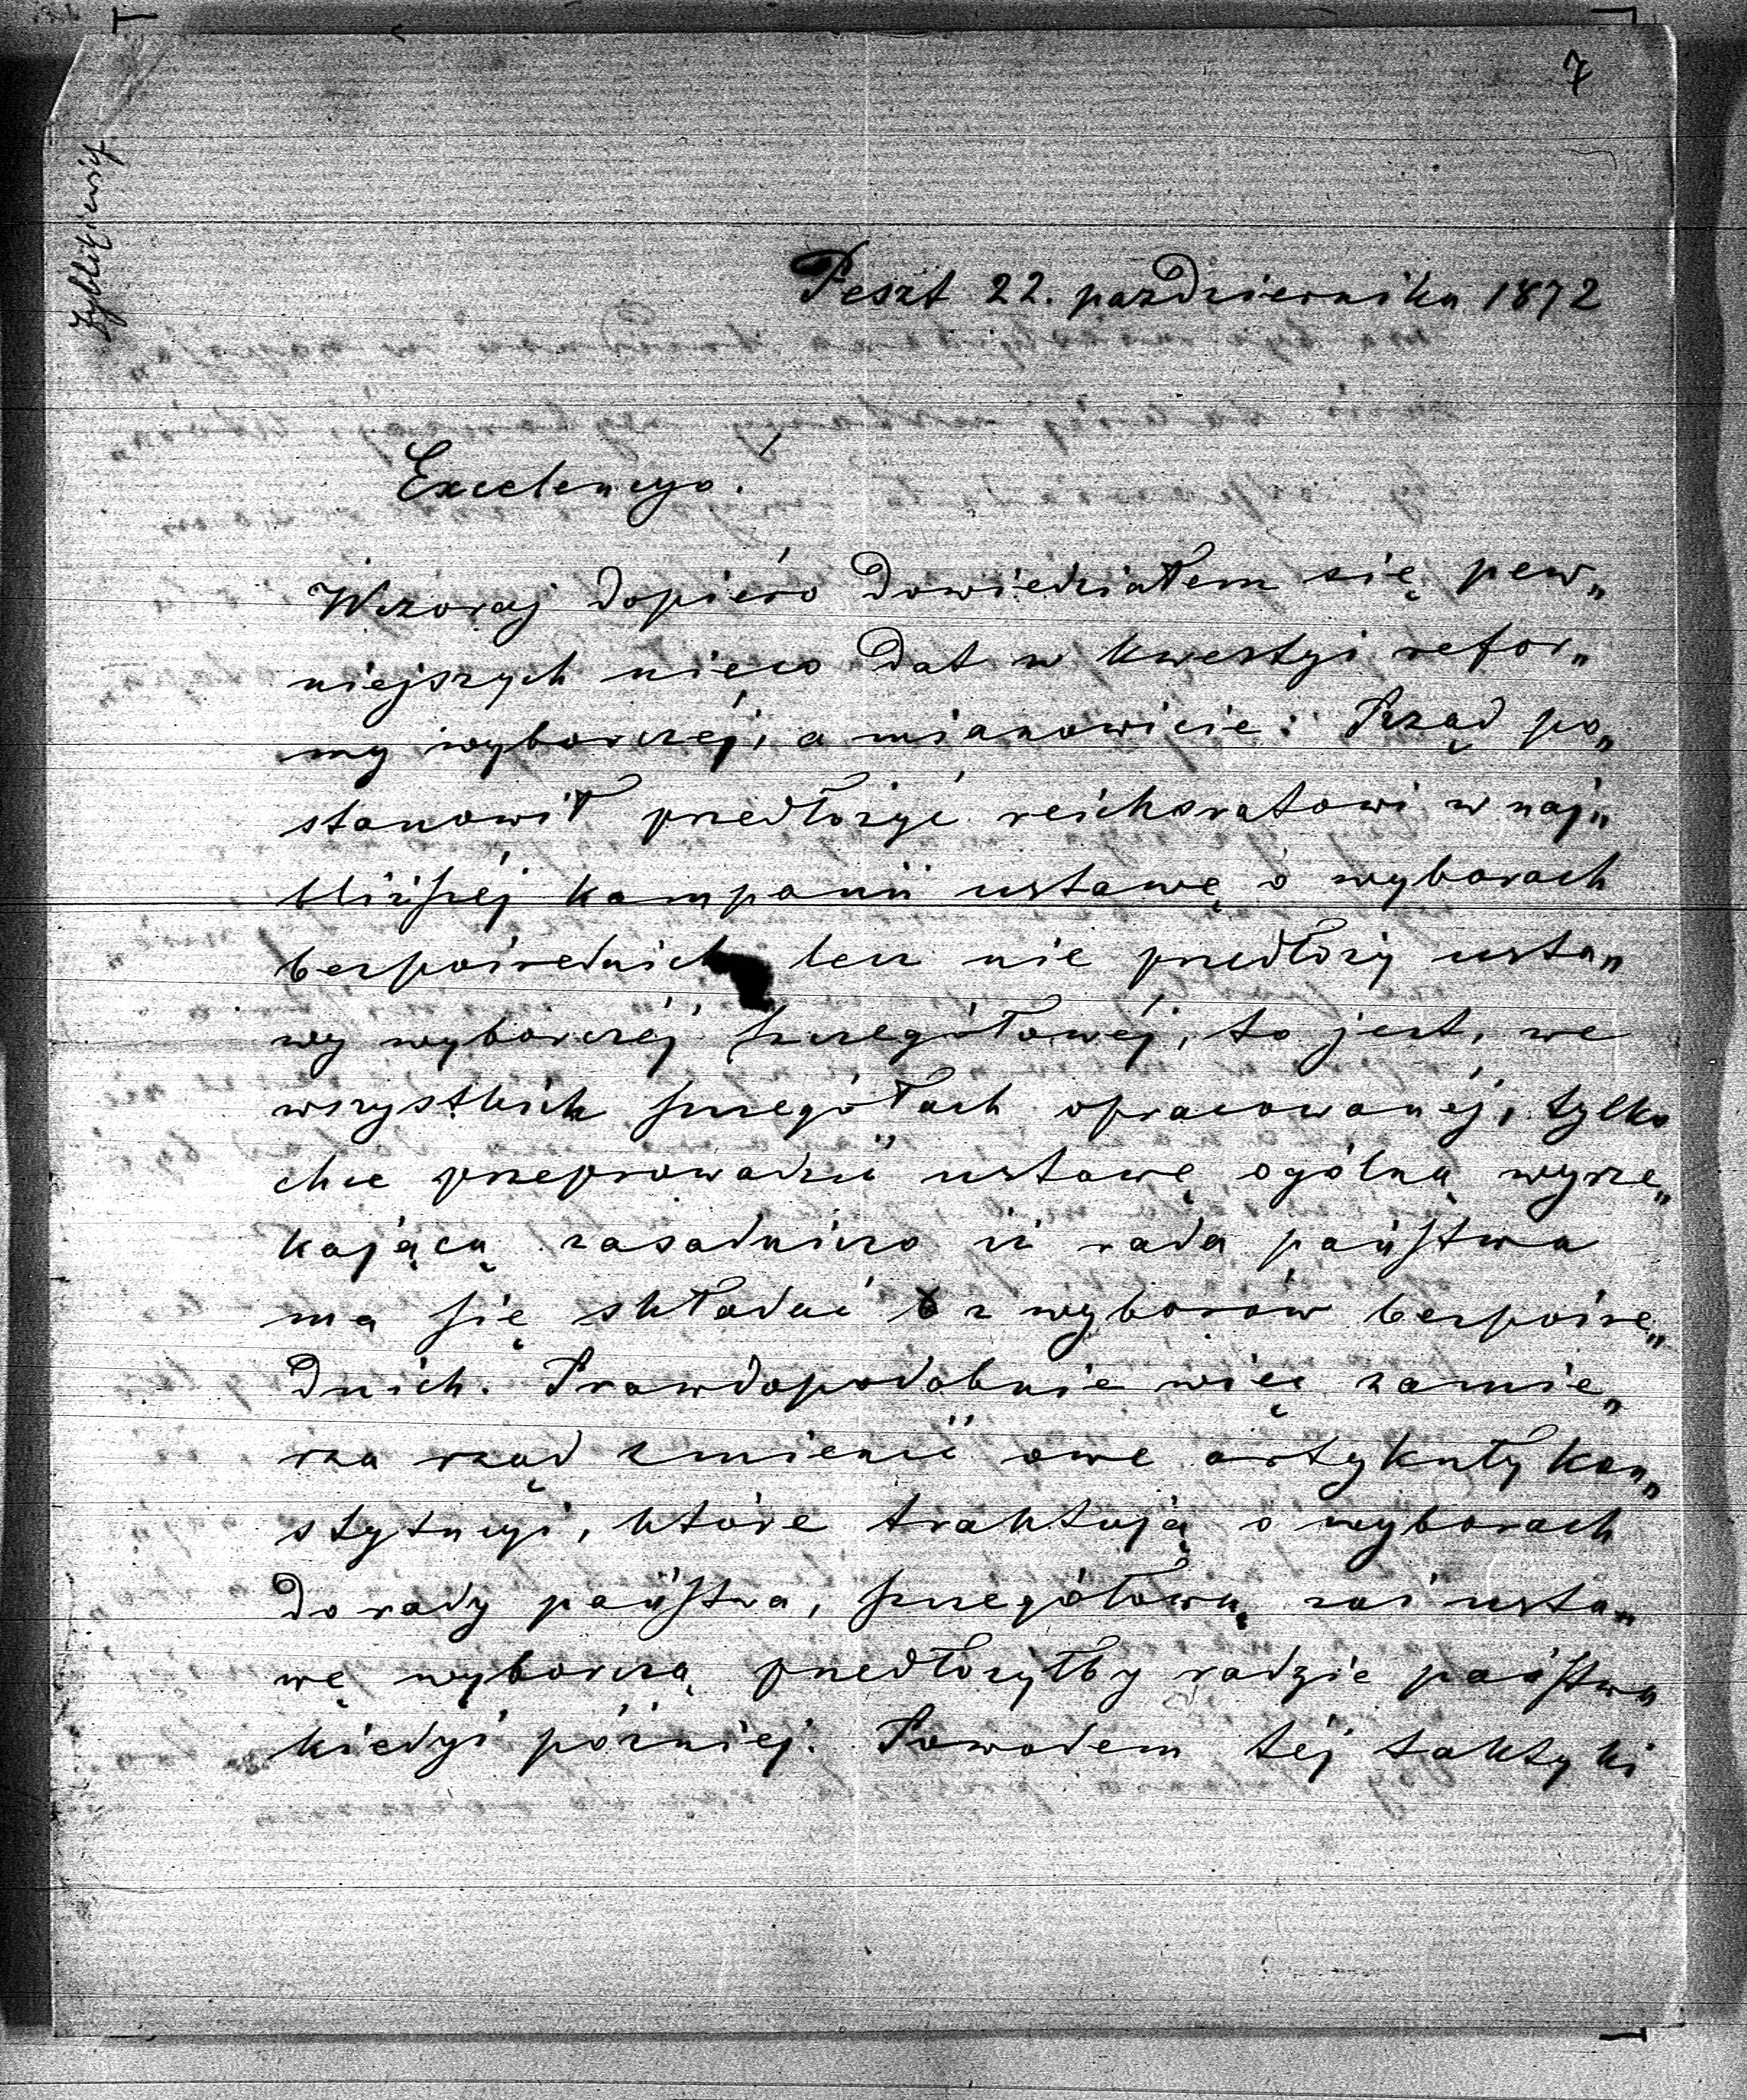 7
Zyblikiewicz
Peszt 22. października 1872
Excelencyo!
Wczoraj dopiéro dowiedziałem się pew„
niejszych nieco dat w kwestyi refor„
my wyborczéj, a mianowicie: Rząd po„
stanowił przedłożyć reichsratowi w naj„
bliższéj kampanii ustawę o wyborach
bezpośrednich lecz nie przedłoży usta„
wy wyborczéj szczegółowéj, to jest, we
wszystkich szczegółach opracowanéj, tylko
chce przeprowadzić ustawę ogólną wyrze„
kającą zasadniczo iż rada państwa
ma się składać z wyborów bezpośre„
dnich. Prawdopodobnie więc zamie„
rza rząd zmienić owe artykuły kon„
stytucyi, które traktują o wyborach
do rady państwa, szczegółową zaś usta„
wę wyborczą przedłożyłby radzie państwa
kiedyś później. Powodem téj taktyki